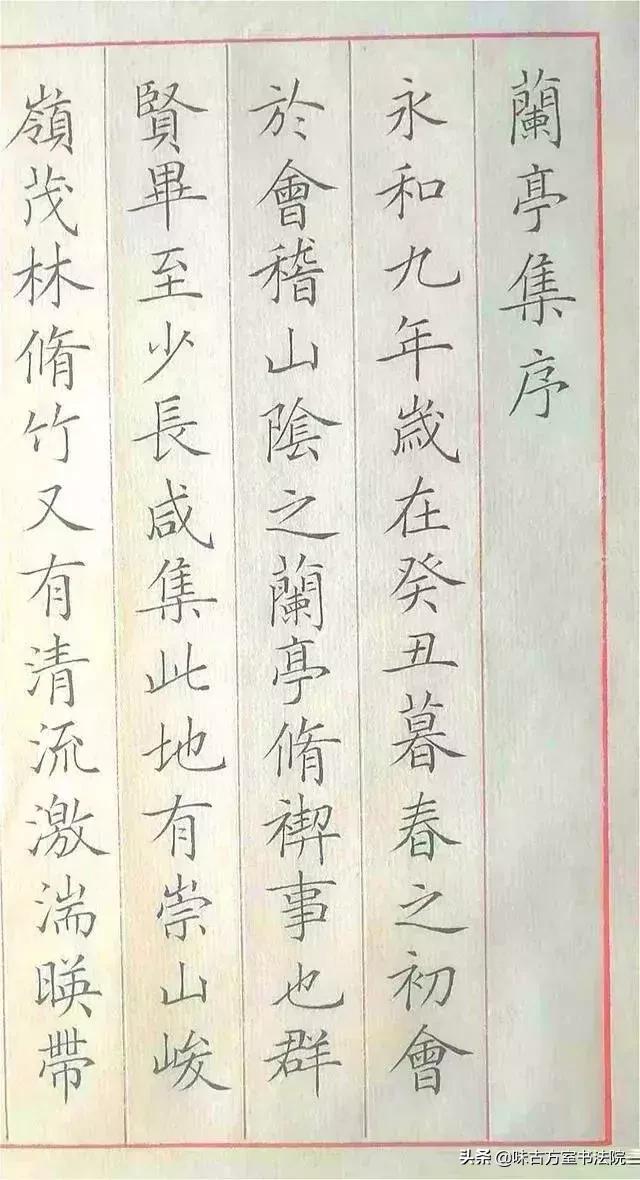 蘭亭集序
永和九年歲在癸丑暮春之初會
於會稽山陰之蘭亭脩禊事也群
賢畢至少長咸集此地有崇山峻
嶺茂林脩竹又有清流激湍暎帶
头条 @味古方室书法院